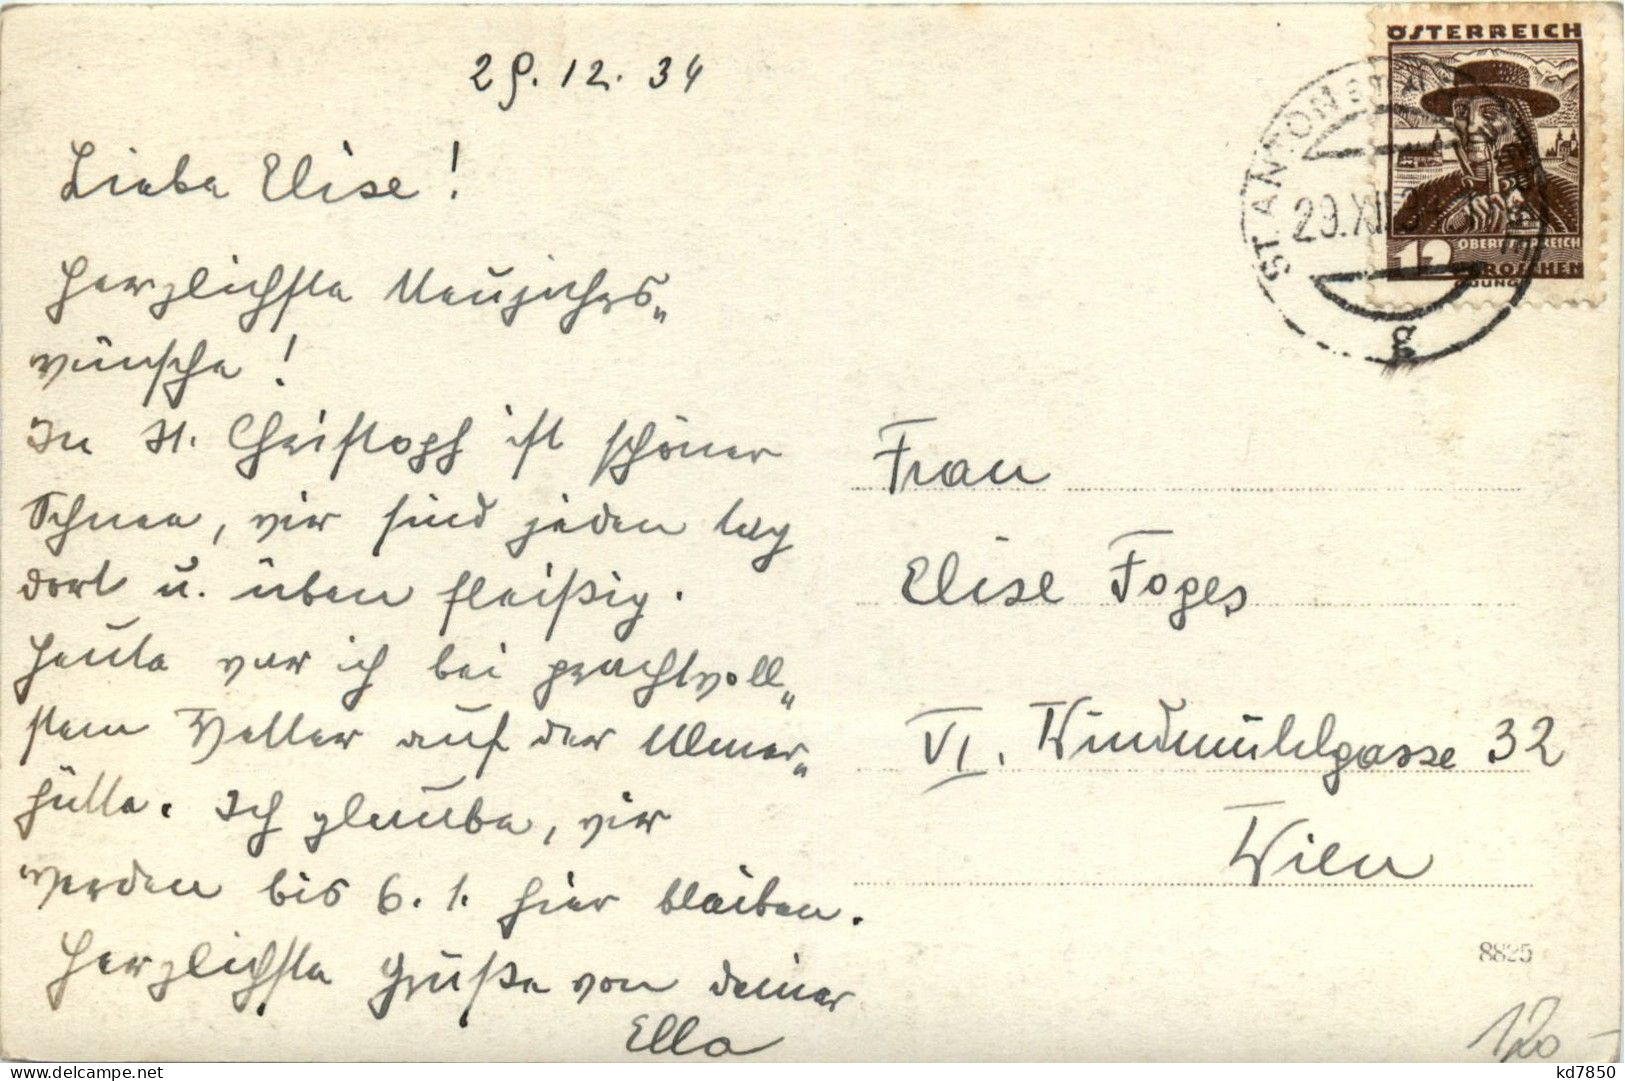 29.12.34
Liebe Elise!
Herzlichste Neujahrs„
wünsche!
In St. Christoph ist schöner
Schnee, wir sind jeden Tag
dort u. üben fleißig.
Heute war ich bei prachtvoll„
stem Wetter auf der Ulmer„
hütte. Ich glaube, wir
werden bis 6.1. hier bleiben.
Herzlichste Grüße von deiner
Ella
ÖSTERREICH
OBERÖSTERREICH
12 GROSCHEN
ST. ANTON
29.XII.34
g
Frau
Elise Foges
VI. Windmühlgasse 32
Wien
8825
120
kd7850